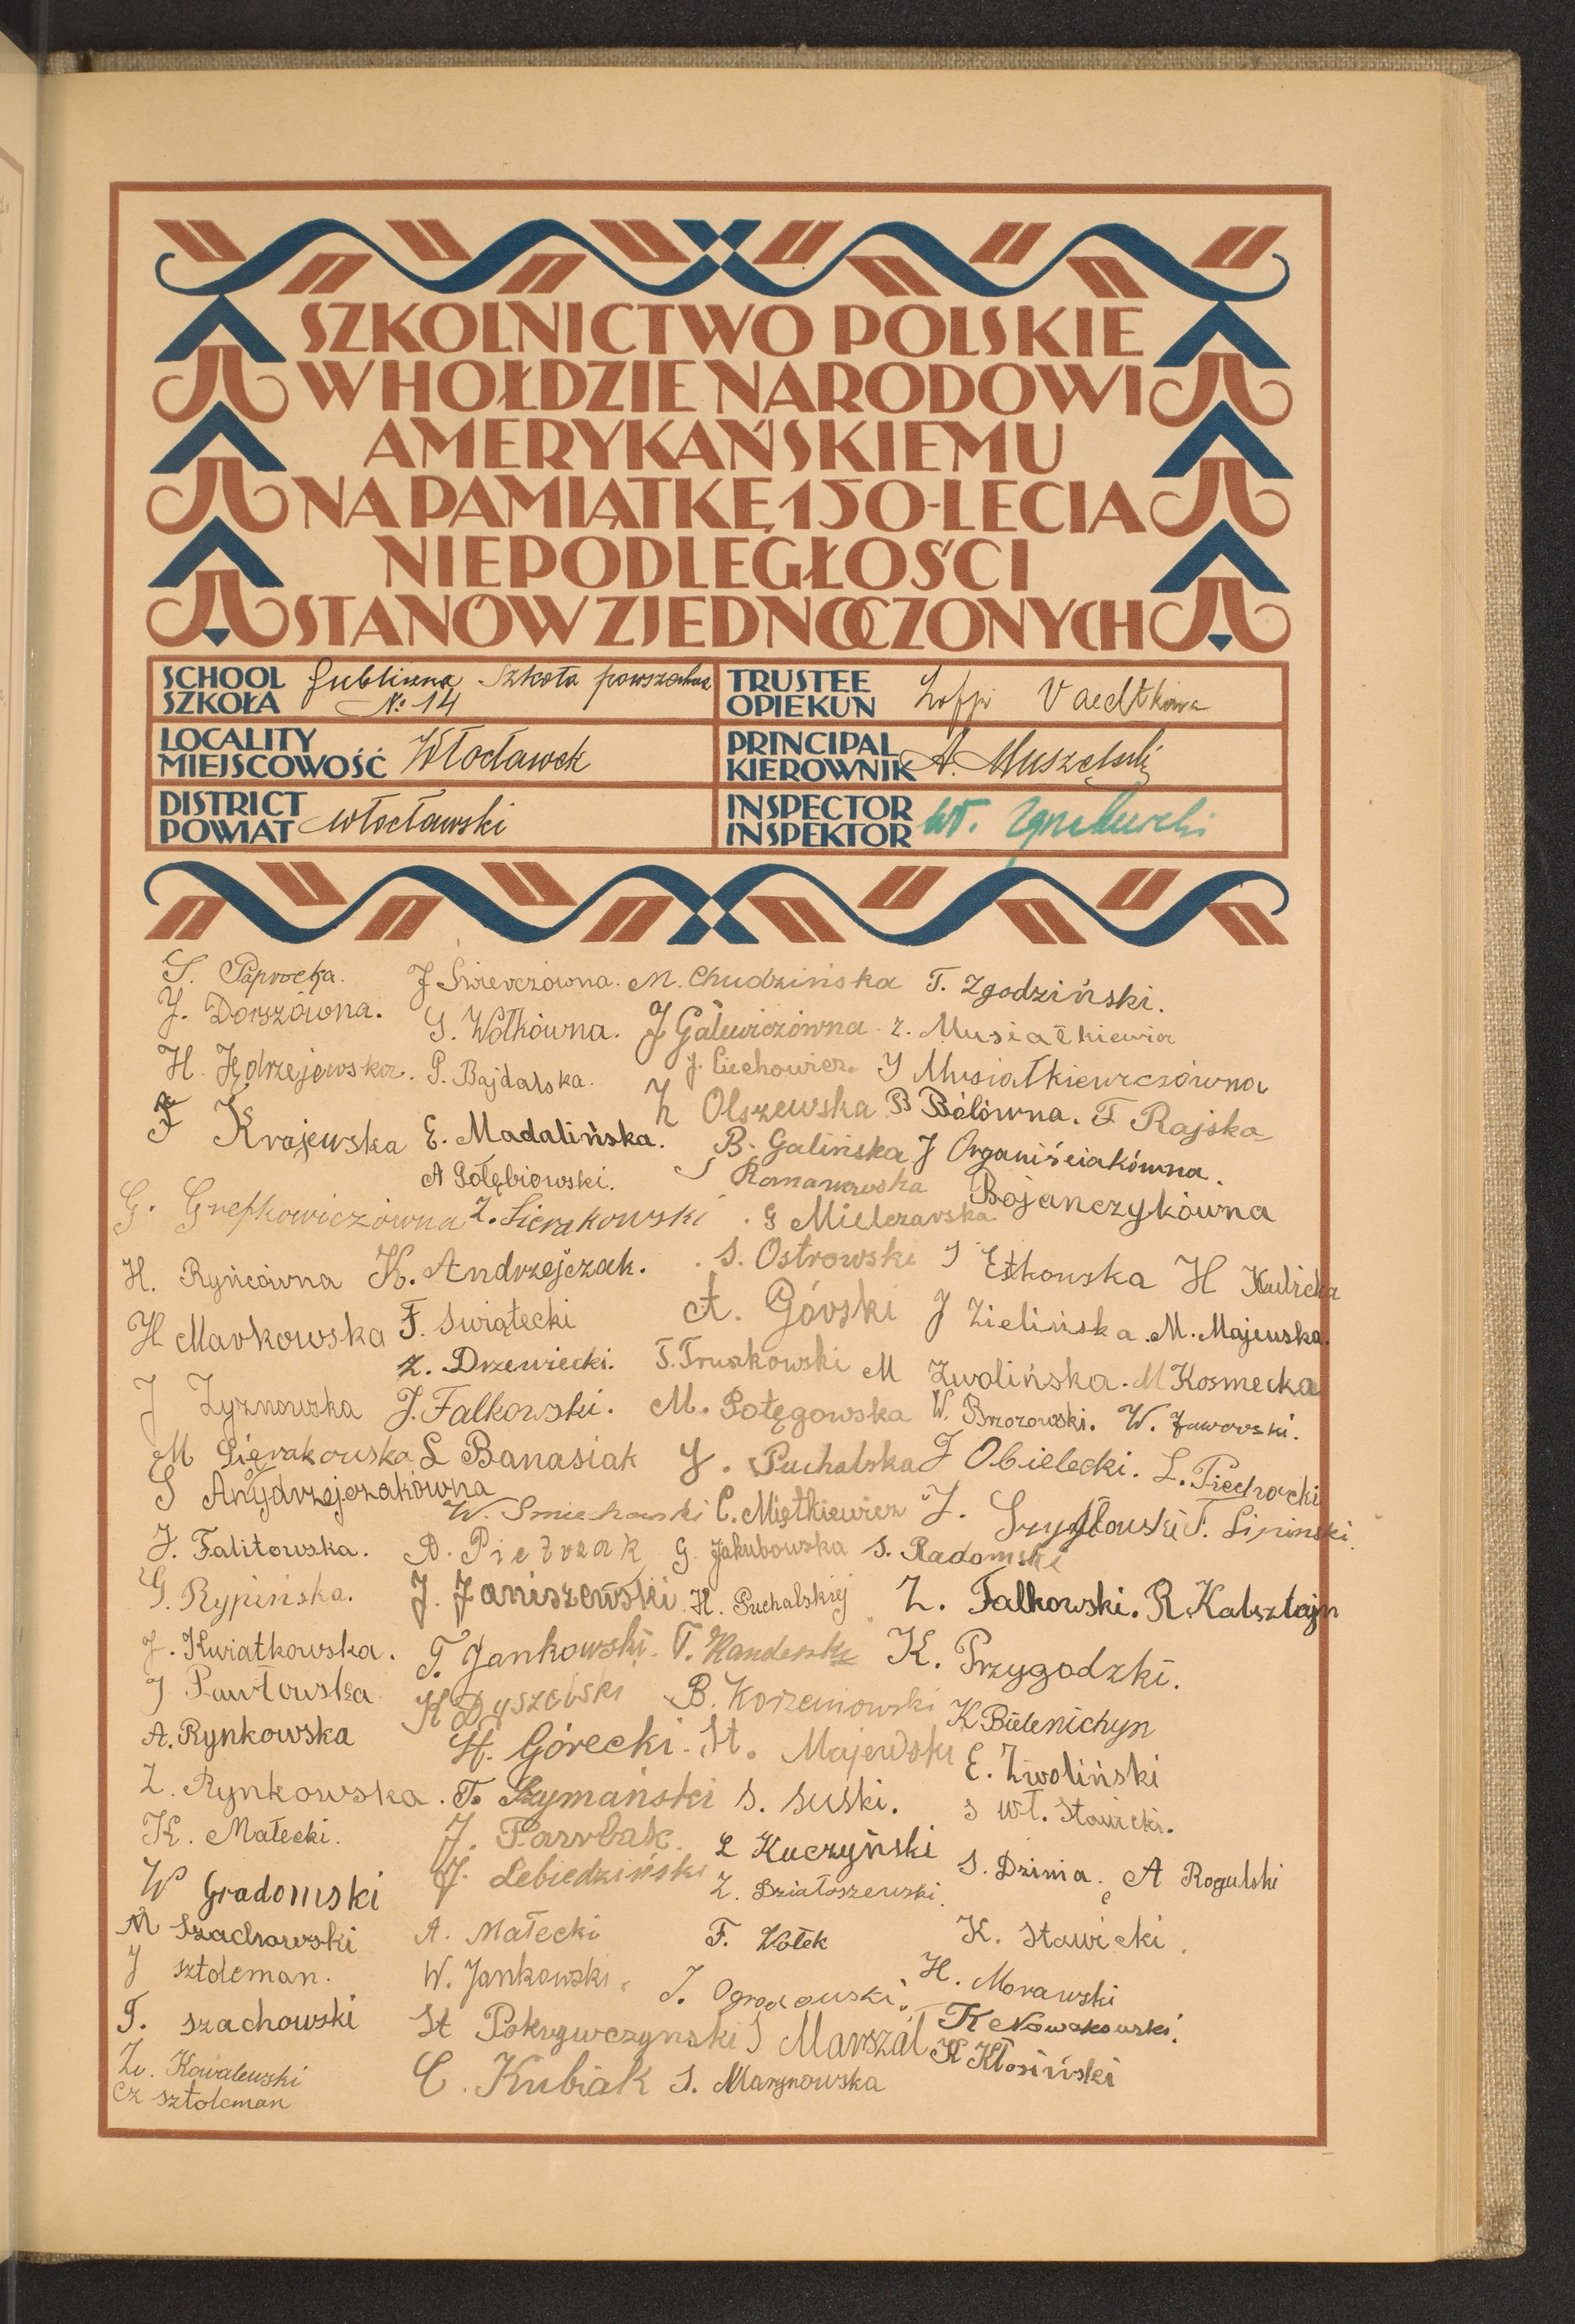 SZKOLNICTWO POLSKIE
W HOŁDZIE NARODOWI
AMERYKAŃSKIEMU
NA PAMIĄTKĘ 150-LECIA
NIEPODLEGŁOŚCI
STANÓW ZJEDNOCZONYCH
SCHOOL
SZKOŁA
Szkoła powszechna
№ 14
TRUSTEE
OPIEKUN
LOCALITY
MIEJSCOWOŚĆ
Włocławek
PRINCIPAL
KIEROWNIK
A.
DISTRICT
POWIAT
włocławski
INSPECTOR
INSPEKTOR
Wł.
S. Paprocka. M. Chudzińska T. Zgodziński.
J. Dorszówna. G. Wołkówna. J Galewiczówna. Z. Musiałkiewicz
H. Jędrzejewska. P. Bajdalska. J. Ciechowicz. J Musiałkiewiczówna
F Krajewska E. Madalińska. Z Olszewska B Bólówna. F Rajska
A Gołębiowski. B. Galińska J Organiściakówna.
S Romanowska Bojanczykówna
G. Grefkowiczówna Z. Sierakowski. G Mielczarska
H. Ryńcówna K. Andrzejczak. S. Ostrowski S Etkowska H Kulicka
H Markowska F. Swiątecki A. Górski J Zielińska M. Majewska.
Z. Drzewiecki. T. Truszkowski M Zwolińska. M Kosmecka
J Zyznowska J. Falkowski. M. Potęgowska W. Brzozowski. W. Jaworski.
M Sierakowska L Banasiak J. Puchalska J Obielecki. L. Piechocki
S Andrzejczakówna W. Smiechowski C. Miętkiewicz J. Szydłowski F. Lipinski.
J. Falitowska. A. Pietrzak G. Jakubowska S. Radomski
G. Rypińska. J. Janiszewski H. Puchalskiej Z. Falkowski. R. Kalsztajn
J. Kwiatkowska. T. Jankowski. K. Przygodzki.
J Pawłowska B. Korzeniowski K Bielenichyn
A. Rynkowska H. Górecki. St. Majewski E. Zwoliński
Z. Rynkowska. T. Szymański S. Suski. S Wł. Stawicki.
K. Małecki. J. L Kuczyński
W Gradomski J. Lebiedziński Z. Działoszewski. S. Dzinia. A Rogulski
M Szachowski A. Małecki F. Wołek K. Stawicki.
J sztoleman. W. Jankowski. J. Ogrodowski. H. Morawski
T. szachowski St Pokrywczynski J Marszał K Nowakowski.
Zv. Kowalewski C. Kubiak S. Marynowska K Kłosiński
Cz sztoleman